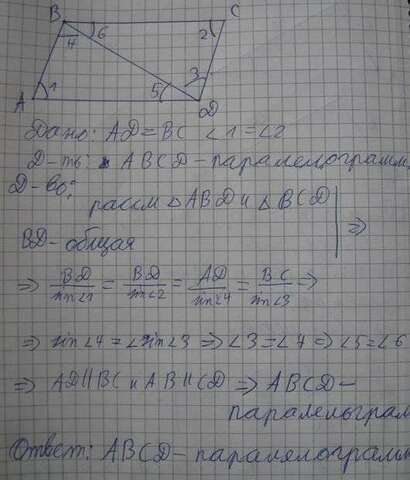 B C
4 6 2
A 1 5 3 D
Дано: AD=BC ∠1=∠2
Д-ть: ABCD-паралелограмм
Д-во:
рассм △ABD и △BCD
BD-общая ⇒
⇒ BD/sin∠1 = BD/sin∠2 = AD/sin∠4 = BC/sin∠3 ⇒
⇒ sin∠4 = ∠sin∠3 ⇒ ∠3=∠4 ⇒ ∠5=∠6
⇒ AD||BC и AB||CD ⇒ ABCD-
паралельграм
Ответ: ABCD-паралелограмм